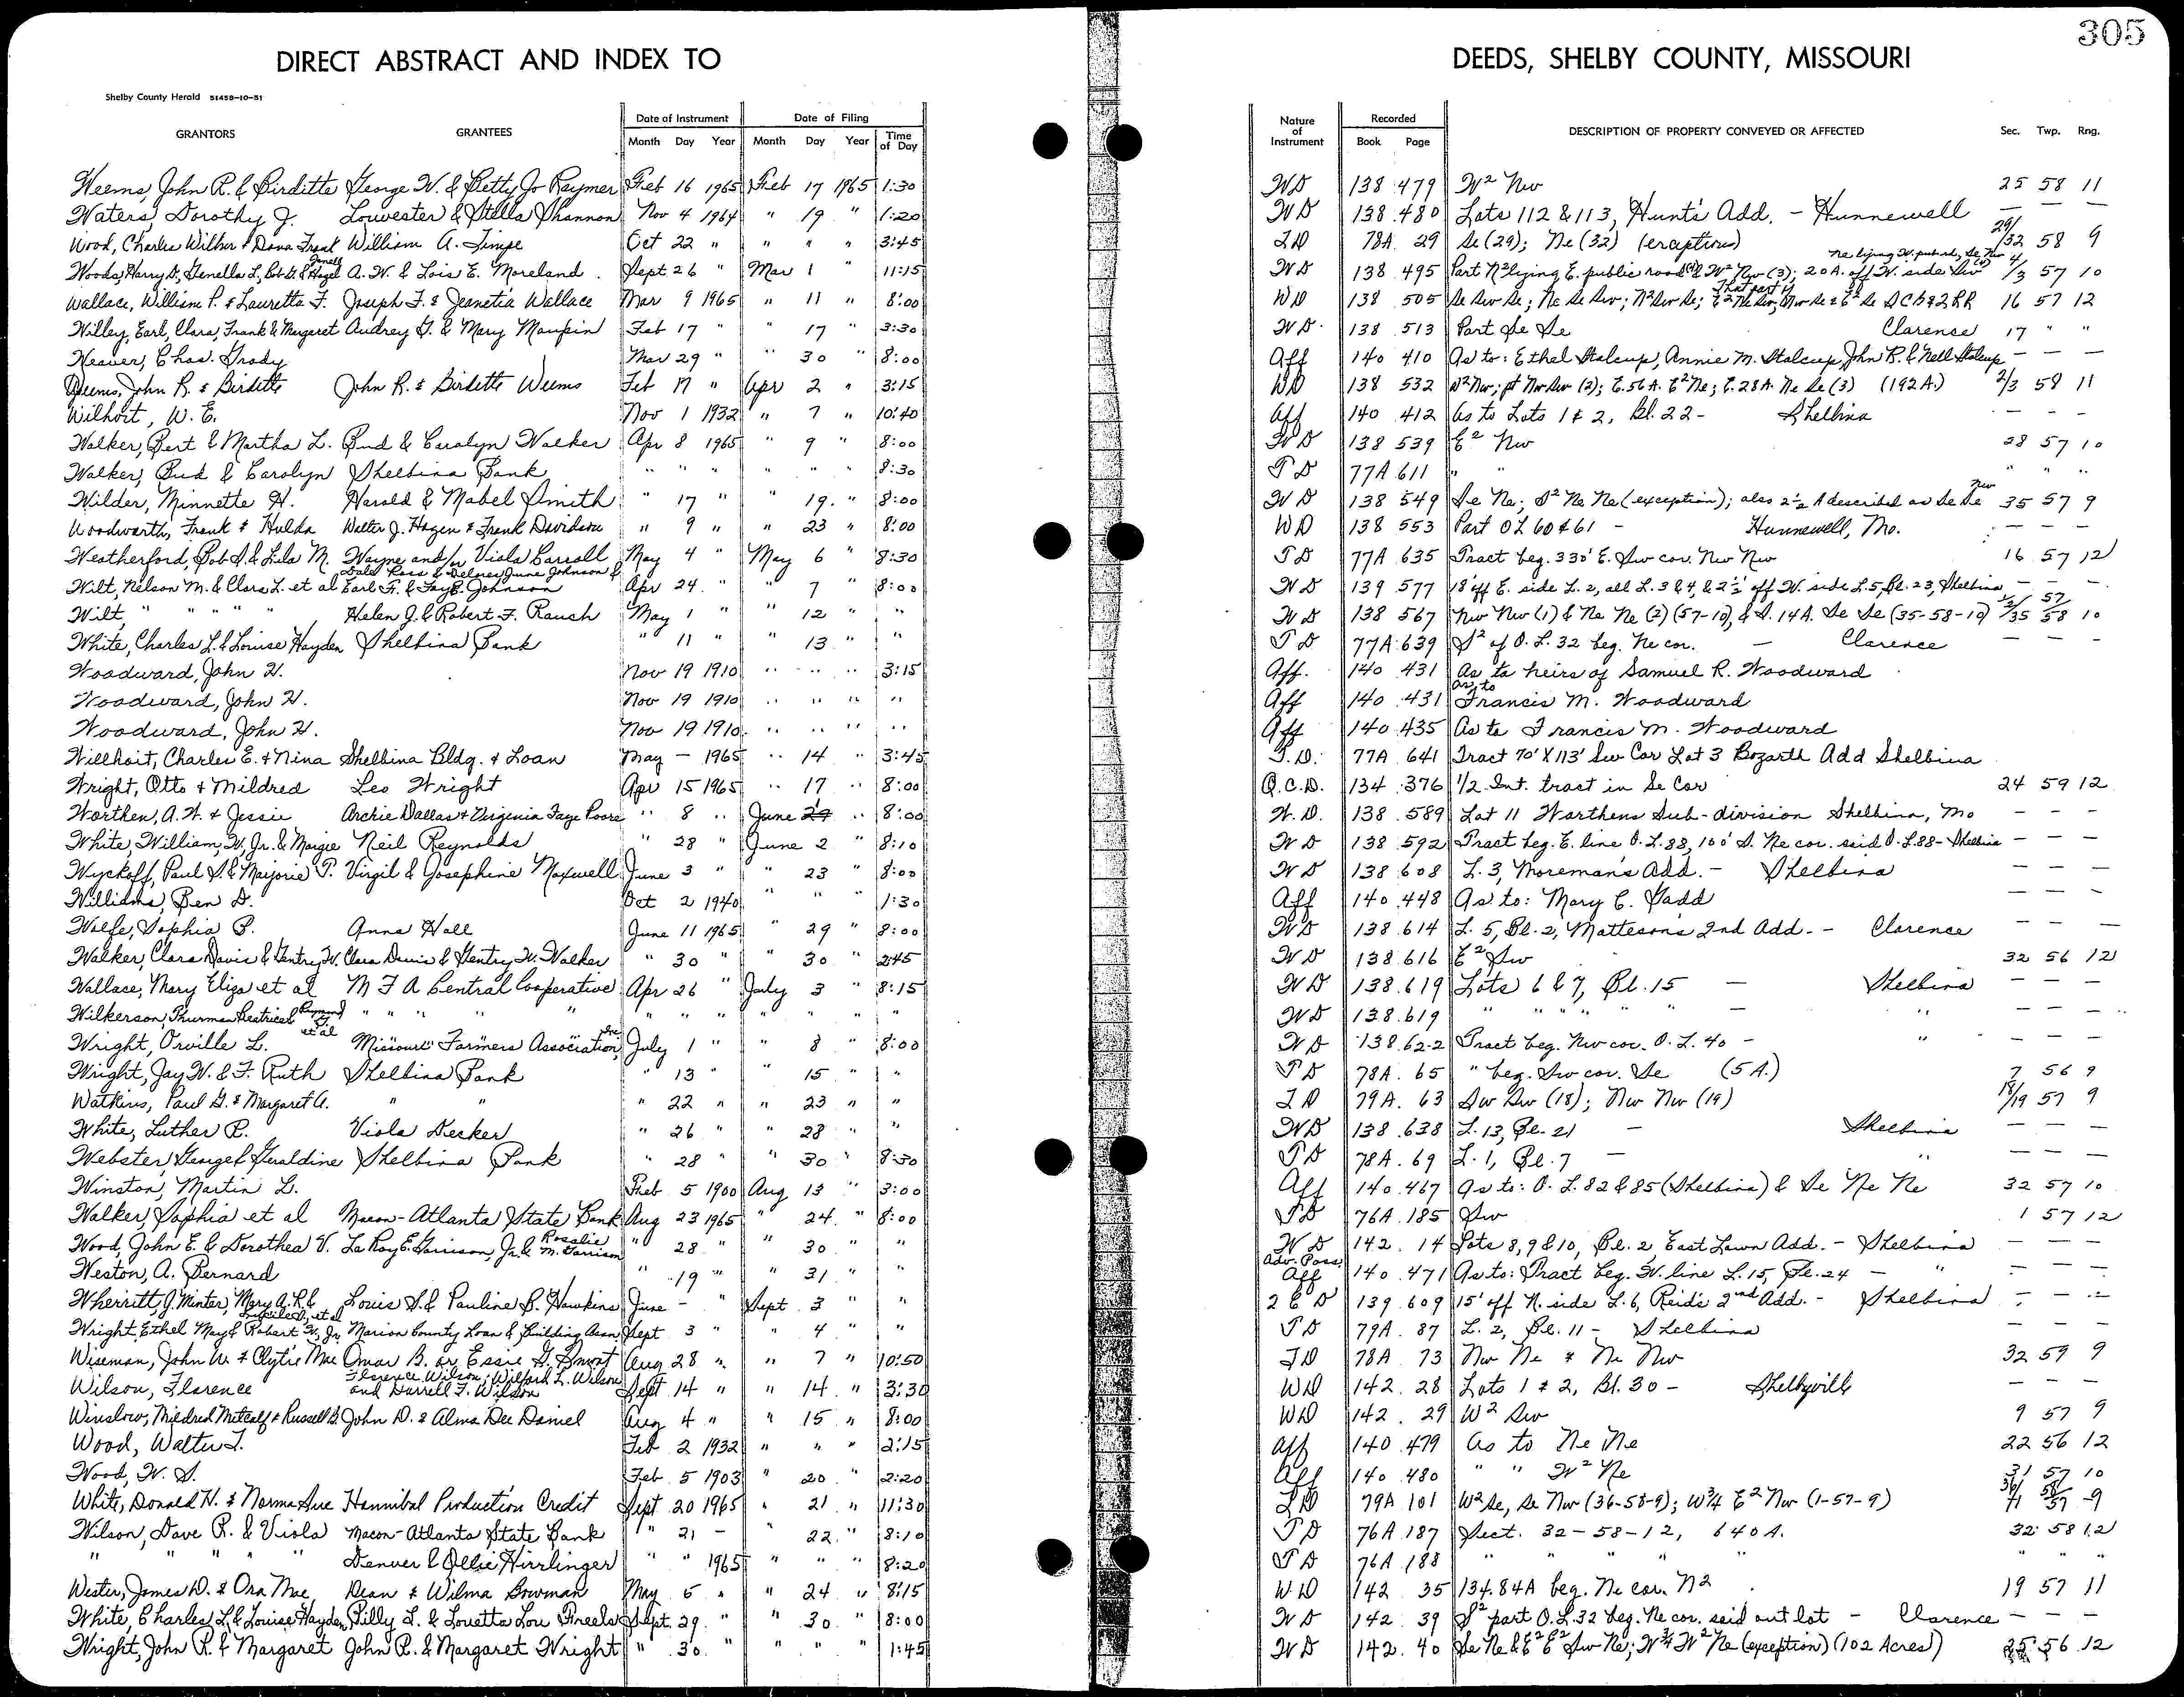 305
DIRECT ABSTRACT AND INDEX TO DEEDS, SHELBY COUNTY, MISSOURI
Shelby County Herald 51458-10-51
GRANTORS GRANTEES Date of Instrument Date of Filing Nature of Instrument Recorded DESCRIPTION OF PROPERTY CONVEYED OR AFFECTED Sec. Twp. Rng.
Month Day Year Month Day Year Time of Day Book Page
Weems, John R. & Birditte George W. & Betty Jo Raymer Feb 16 1965 Feb 17 1965 1:30 WD 138 479 W² Nw 25 58 11
Waters, Dorothy J. Louvester & Stella Shannon Nov 4 1964 " 19 " 1:20 WD 138 480 Lots 112 & 113, Hunt's Add. - Hunnewell — — —
Wood, Charles Wilber & Dona Frank William A. Timpe Oct 22 " " " " 3:45 TD 78A 29 Se (29); Ne (32) (exceptions) 29/32 58 9
Woods, Harry D., Genella L., A. W. & Lois E. Moreland Sept 26 " Mar 1 " 11:15 WD 138 495 Part N² lying E. public road & W² Nw (3); 20 A. off W. side 4/3 57 10
Wallace, William P. & Lauretta F. Joseph F. & Jeanetia Wallace Mar 9 1965 " 11 " 8:00 WD 138 505 Se Sw Se; Ne Se Sw; N² Sw Se; That part of E² Ne Sw; Nw Se & E² Se S CB&Q RR 16 57 12
Willey, Earl, Clara, Frank & Margaret Audrey G. & Mary Maupin Feb 17 " " 17 " 3:30 WD 138 513 Part Se Se Clarence 17 " "
Weaver, Chas. Grady Mar 29 " " 30 " 8:00 Aff 140 410 As to: Ethel Stalcup, Annie M. Stalcup, John R. & Nell Stalcup — — —
Weems, John R. & Birditte John R. & Birditte Weems Feb 17 " Apr 2 " 3:15 WD 138 532 W² Nw; pt Nw Sw (2); E. 56 A. E² Ne; E. 28 A. Ne Se (3) (192 A.) 2/3 58 11
Wilhort, W. E. Nov 1 1932 " 7 " 10:40 Aff 140 412 As to Lots 1 & 2, Bl. 22 - Shelbina - - -
Walker, Bert & Martha L. Bud & Carolyn Walker Apr 8 1965 " 9 " 8:00 WD 138 539 E² Nw 28 57 10
Walker, Bud & Carolyn Shelbina Bank " " " " " " 8:30 TD 77A 611 " " " " "
Wilder, Minnette H. Harold & Mabel Smith " 17 " " 19 " 8:00 WD 138 549 Se Ne; S² Ne Ne (exception); also 2½ A described as Se Se Nw 35 57 9
Woodwarth, Frank & Hulda Walter J. Hagen & Frank Davidson " 9 " " 23 " 8:00 WD 138 553 Part OL 60 & 61 - Hunnewell, Mo. - — —
Weatherford, Bob S. & Lila M. Wayne and/or Viola Carroll May 4 " May 6 " 8:30 TD 77A 635 Tract beg. 330' E. Sw cor. Nw Nw 16 57 12
Wilt, Nelson M. & Clara L. et al Dale Ross & Delmer June Johnson & Earl F. & Faye Johnson Apr 24 " " 7 " 8:00 WD 139 577 18' off E. side L. 2, all L. 3 & 4, & 2½' off W. side L. 5, Bl. 23, Shelbina — — -
Wilt, " " " " Helen J. & Robert F. Rauch May 1 " " 12 " " WD 138 567 Nw Nw (1) & Ne Ne (2) (57-10), & S. 14 A. Se Se (35-58-10) 1/2/35 57/58 10
White, Charles L. & Louise Hayden Shelbina Bank " 11 " " 13 " " TD 77A 639 S² of O. L. 32 beg. Ne cor. — Clarence — — —
Woodward, John H. Nov 19 1910 " " " 3:15 Aff. 140 431 As to heirs of Samuel R. Woodward
Woodward, John H. Nov 19 1910 " " " " Aff 140 431 As to Francis M. Woodward
Woodward, John H. Nov 19 1910 " " " " Aff 140 435 As to Francis M. Woodward
Willhoit, Charles E. & Nina Shelbina Bldg. & Loan May — 1965 " 14 " 3:45 T.D. 77A 641 Tract 70' X 113' Sw Cor Lot 3 Bozarth Add Shelbina
Wright, Otto & Mildred Leo Wright Apr 15 1965 " 17 " 8:00 Q.C.D. 134 376 1/2 Int. tract in Se Cor 24 59 12
Worthen, A. W. & Jessie Archie Dallas & Virginia Faye Poore " 8 " June " 8:00 W.D. 138 589 Lot 11 Worthens Sub-division Shelbina, Mo — — —
White, William W., Jr. & Margie Neil Reynolds " 28 " June 2 " 8:10 WD 138 592 Tract beg. E. line O. L. 88, 100' S. Ne cor. said O. L. 88 - Shelbina — — —
Wyckoff, Paul S. & Marjorie P. Virgil & Josephine Maxwell June 3 " " 23 " 8:00 WD 138 608 L. 3, Moreman's Add. - Shelbina — — —
Williams, Ben D. Oct 2 1940 " " " 1:30 Aff 140 448 As to: Mary E. Gadd — — -
Wolfe, Sophia P. Anna Hall June 11 1965 " 29 " 8:00 WD 138 614 L. 5, Bl. 2, Matteson's 2nd Add. - Clarence — — —
Walker, Clara Davis & Gentry W. Clara Davis & Gentry W. Walker " 30 " " 30 " 2:45 WD 138 616 E² Sw 32 56 12
Wallace, Mary Eliza et al M F A Central Cooperative Apr 26 " July 3 " 8:15 WD 138 619 Lots 6 & 7, Bl. 15 — Shelbina — — —
Wilkerson, Thurman Beatrice & Raymond et al " " " " " " " " " " " WD 138 619 " " " " " — " — — —
Wright, Orville L. Missouri Farmers Association, Inc July 1 " " 8 " 8:00 WD 138 622 Tract beg. Nw cor. O. L. 40 — " — — —
Wright, Jay W. & F. Ruth Shelbina Bank " 13 " " 15 " " TD 78A 65 " beg. Sw cor. Se (5 A.) 7 56 9
Watkins, Paul G. & Margaret A. " " " 22 " " 23 " " TD 79A 63 Sw Sw (18); Nw Nw (19) 18/19 57 9
White, Luther R. Viola Decker " 26 " " 28 " " WD 138 638 L. 13, Bl. 21 — Shelbina — — —
Webster, George & Geraldine Shelbina Bank " 28 " " 30 " 8:30 TD 78A 69 L. 1, Bl. 7 — " — — —
Winston, Martin L. Feb 5 1900 Aug 13 " 3:00 Aff 140 467 As to: O. L. 82 & 85 (Shelbina) & Se Ne Ne 32 57 10
Walker, Sophia et al Macon-Atlanta State Bank Aug 23 1965 " 24 " 8:00 TD 76A 185 Sw 1 57 12
Wood, John E. & Dorothea V. LaRoy E. Garrison, Jr. & Rosalie M. Garrison " 28 " " 30 " " WD 142 14 Lots 8, 9 & 10, Bl. 2, East Lawn Add. - Shelbina — — —
Weston, A. Bernard " 19 " " 31 " " Adv. Poss. Aff 140 471 As to: Tract beg. W. line L. 15, Bl. 24 — " — — —
Wherritt, J. Minter, Mary A. R. & et al Louis S. & Pauline B. Hawkins June - " Sept 3 " " 139 609 15' off N. side L. 6, Reid's 2nd Add. - Shelbina - — -
Wright, Ethel May & Robert W., Jr. Marion County Loan & Building Assn. Sept 3 " " 4 " " TD 79A 87 L. 2, Bl. 11 - Shelbina — — —
Wiseman, John W. & Clytie Mae Omar B. or Essie G. Smoot Aug 28 " " 7 " 10:50 TD 78A 73 Nw Ne & Ne Nw 32 59 9
Wilson, Florence Florence Wilson, Wilford L. Wilson and Durrell F. Wilson Sept 14 " " 14 " 3:30 WD 142 28 Lots 1 & 2, Bl. 30 - Shelbyville — — —
Winslow, Mildred Metcalf & Russell B. John D. & Alma Dee Daniel Aug 4 " " 15 " 8:00 WD 142 29 W² Sw 9 57 9
Wood, Walter T. Feb 2 1932 " " " 2:15 Aff 140 479 As to Ne Ne 22 56 12
Wood, W. S. Feb 5 1903 " 20 " 2:20 Aff 140 480 " " W² Ne 31 57 10
White, Donald H. & Norma Sue Hannibal Production Credit Sept 20 1965 " 21 " 11:30 TD 79A 101 W² Se, Se Nw (36-58-9); W¾ E² Nw (1-57-9) 36/1 58/57 9
Wilson, Dave R. & Viola Macon-Atlanta State Bank " 21 - " 22 " 8:10 TD 76A 187 Sect. 32-58-12, 640 A. 32 58 12
" " " " " Denver & Ollie Hirrlinger " " 1965 " " " 8:20 TD 76A 188 " " " " " " "
Wester, James D. & Ora Mae Dean & Wilma Bowman May 5 " " 24 " 8:15 WD 142 35 134.84A beg. Ne cor. N2 19 57 11
White, Charles L. & Louise Hayden Billy L. & Louetta Lou Freels Sept. 29 " " 30 " 8:00 WD 142 39 S² part O. L. 32 beg. Ne cor. said out lot — Clarence — — —
Wright, John R. & Margaret John R. & Margaret Wright " 30 " " " " 1:45 WD 142 40 Se Ne & E² E² Sw Ne; W¾ W² Ne (exception) (102 Acres) 25 56 12